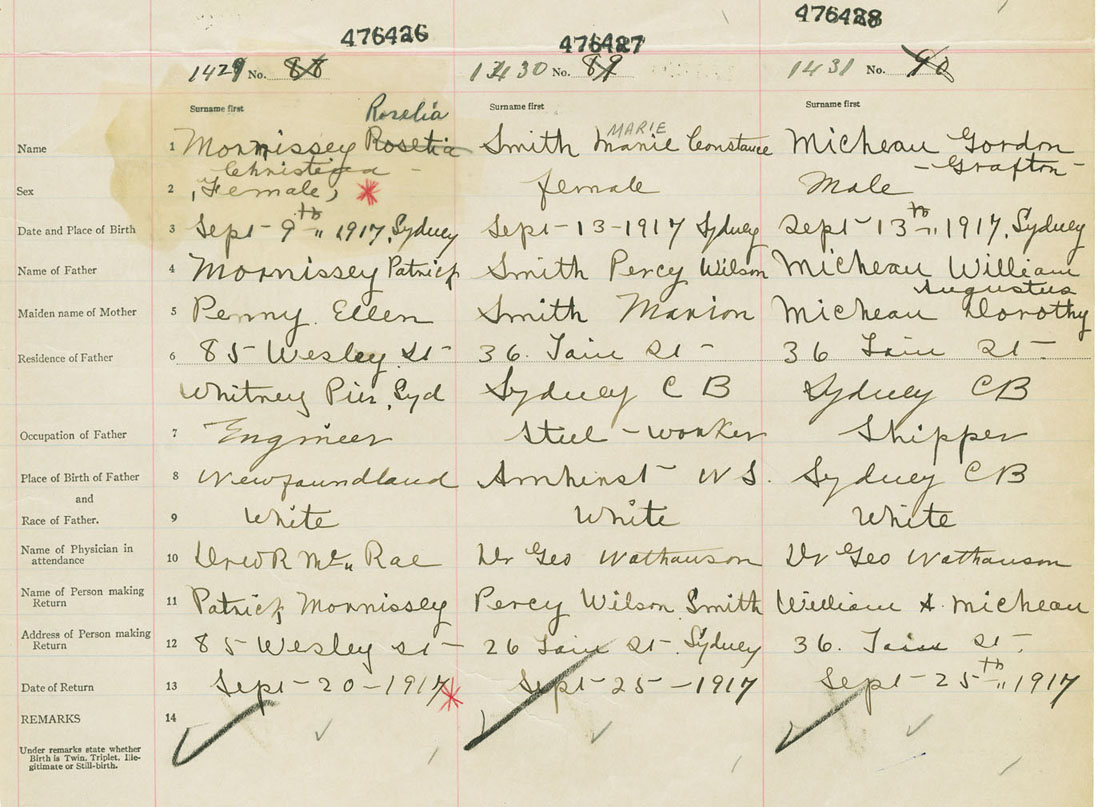 476426 476427 476428
1429 No. 88 13430 No. 89 1431 No. 90
Surname first Surname first Surname first
Rosalia MARIE
Name 1 Morrissey Rosetia Smith Marie Constance Micheau Gordon
Christiena - - Grafton -
Sex 2 (Female) * female Male
Date and Place of Birth 3 Sept - 9th 1917, Sydney Sept - 13 - 1917 Sydney Sept - 13th 1917, Sydney
Name of Father 4 Morrissey Patrick Smith Percy Wilson Micheau William
Augustus
Maiden name of Mother 5 Penny. Ellen Smith Marion Micheau Dorothy
Residence of Father 6 85 Wesley St - 36. St - 36 St -
Whitney Pier, Syd Sydney C B Sydney C B
Occupation of Father 7 Engineer Steel - worker Shipper
Place of Birth of Father 8 Newfoundland Amherst N S. Sydney C B
and
Race of Father. 9 White White White
Name of Physician in
attendance 10 Dr W R Mc Rae Dr Geo Dr Geo
Name of Person making
Return 11 Patrick Morrissey Percy Wilson Smith William A. Micheau
Address of Person making
Return 12 85 Wesley St - 26 St. Sydney 36. St -
Date of Return 13 Sept - 20 - 1917 * Sept - 25 - 1917 Sept - 25th 1917
REMARKS 14
Under remarks state whether
Birth is Twin, Triplet, Ille-
gitimate or Still-birth.